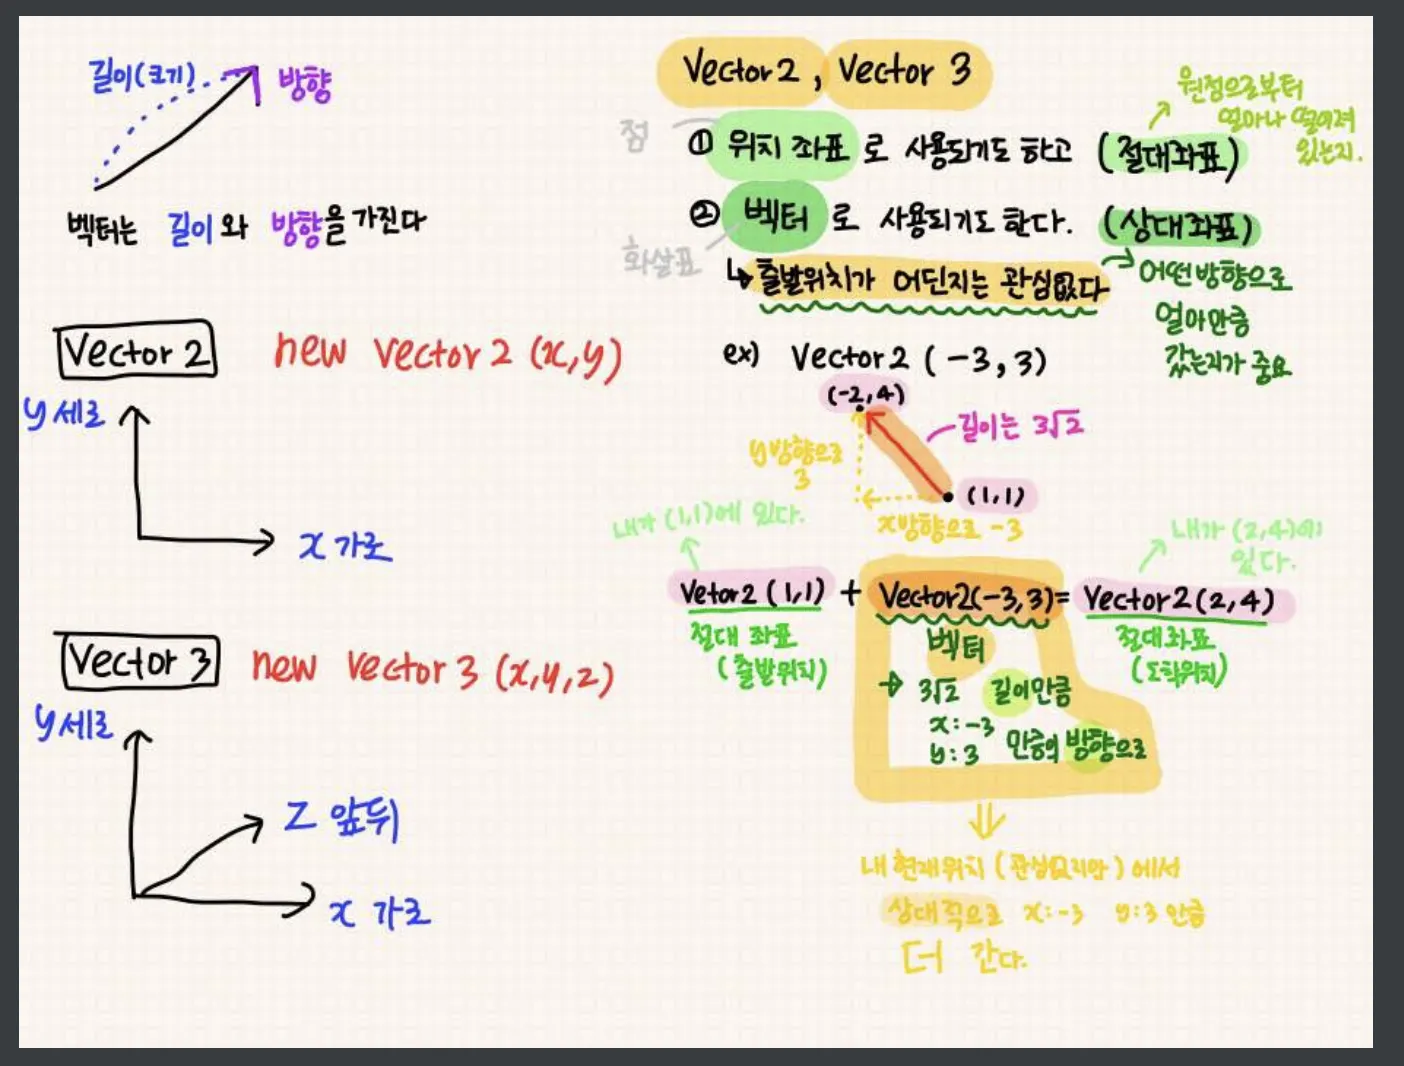 길이(크기)
방향
벡터는 길이와 방향을 가진다
Vector 2
new Vector 2 (x,y)
y 세로
x 가로
Vector 3
new Vector 3 (x,y,z)
y 세로
z 앞뒤
x 가로
Vector 2 , Vector 3
점
① 위치 좌표로 사용되기도 하고 (절대좌표)
원점으로부터
얼마나 떨어져
있는지.
② 벡터로 사용되기도 한다. (상대좌표)
화살표
↳ 출발위치가 어딘지는 관심없다
어떤 방향으로
얼마만큼
갔는지가 중요
ex) Vector 2 ( -3, 3)
(-2,4)
길이는 3√2
y방향으로
3
(1,1)
x방향으로 -3
내가 (1,1)에 있다.
내가 (2,4)에
있다.
Vetor2 (1,1) + Vector2(-3,3) = Vector2(2,4)
절대 좌표
(출발위치)
벡터
→ 3√2 길이만큼
x: -3
y: 3 만큼의 방향으로
절대좌표
(도착위치)
내 현재위치 (관심없지만) 에서
상대적으로 x: -3 y: 3 만큼
더 간다.